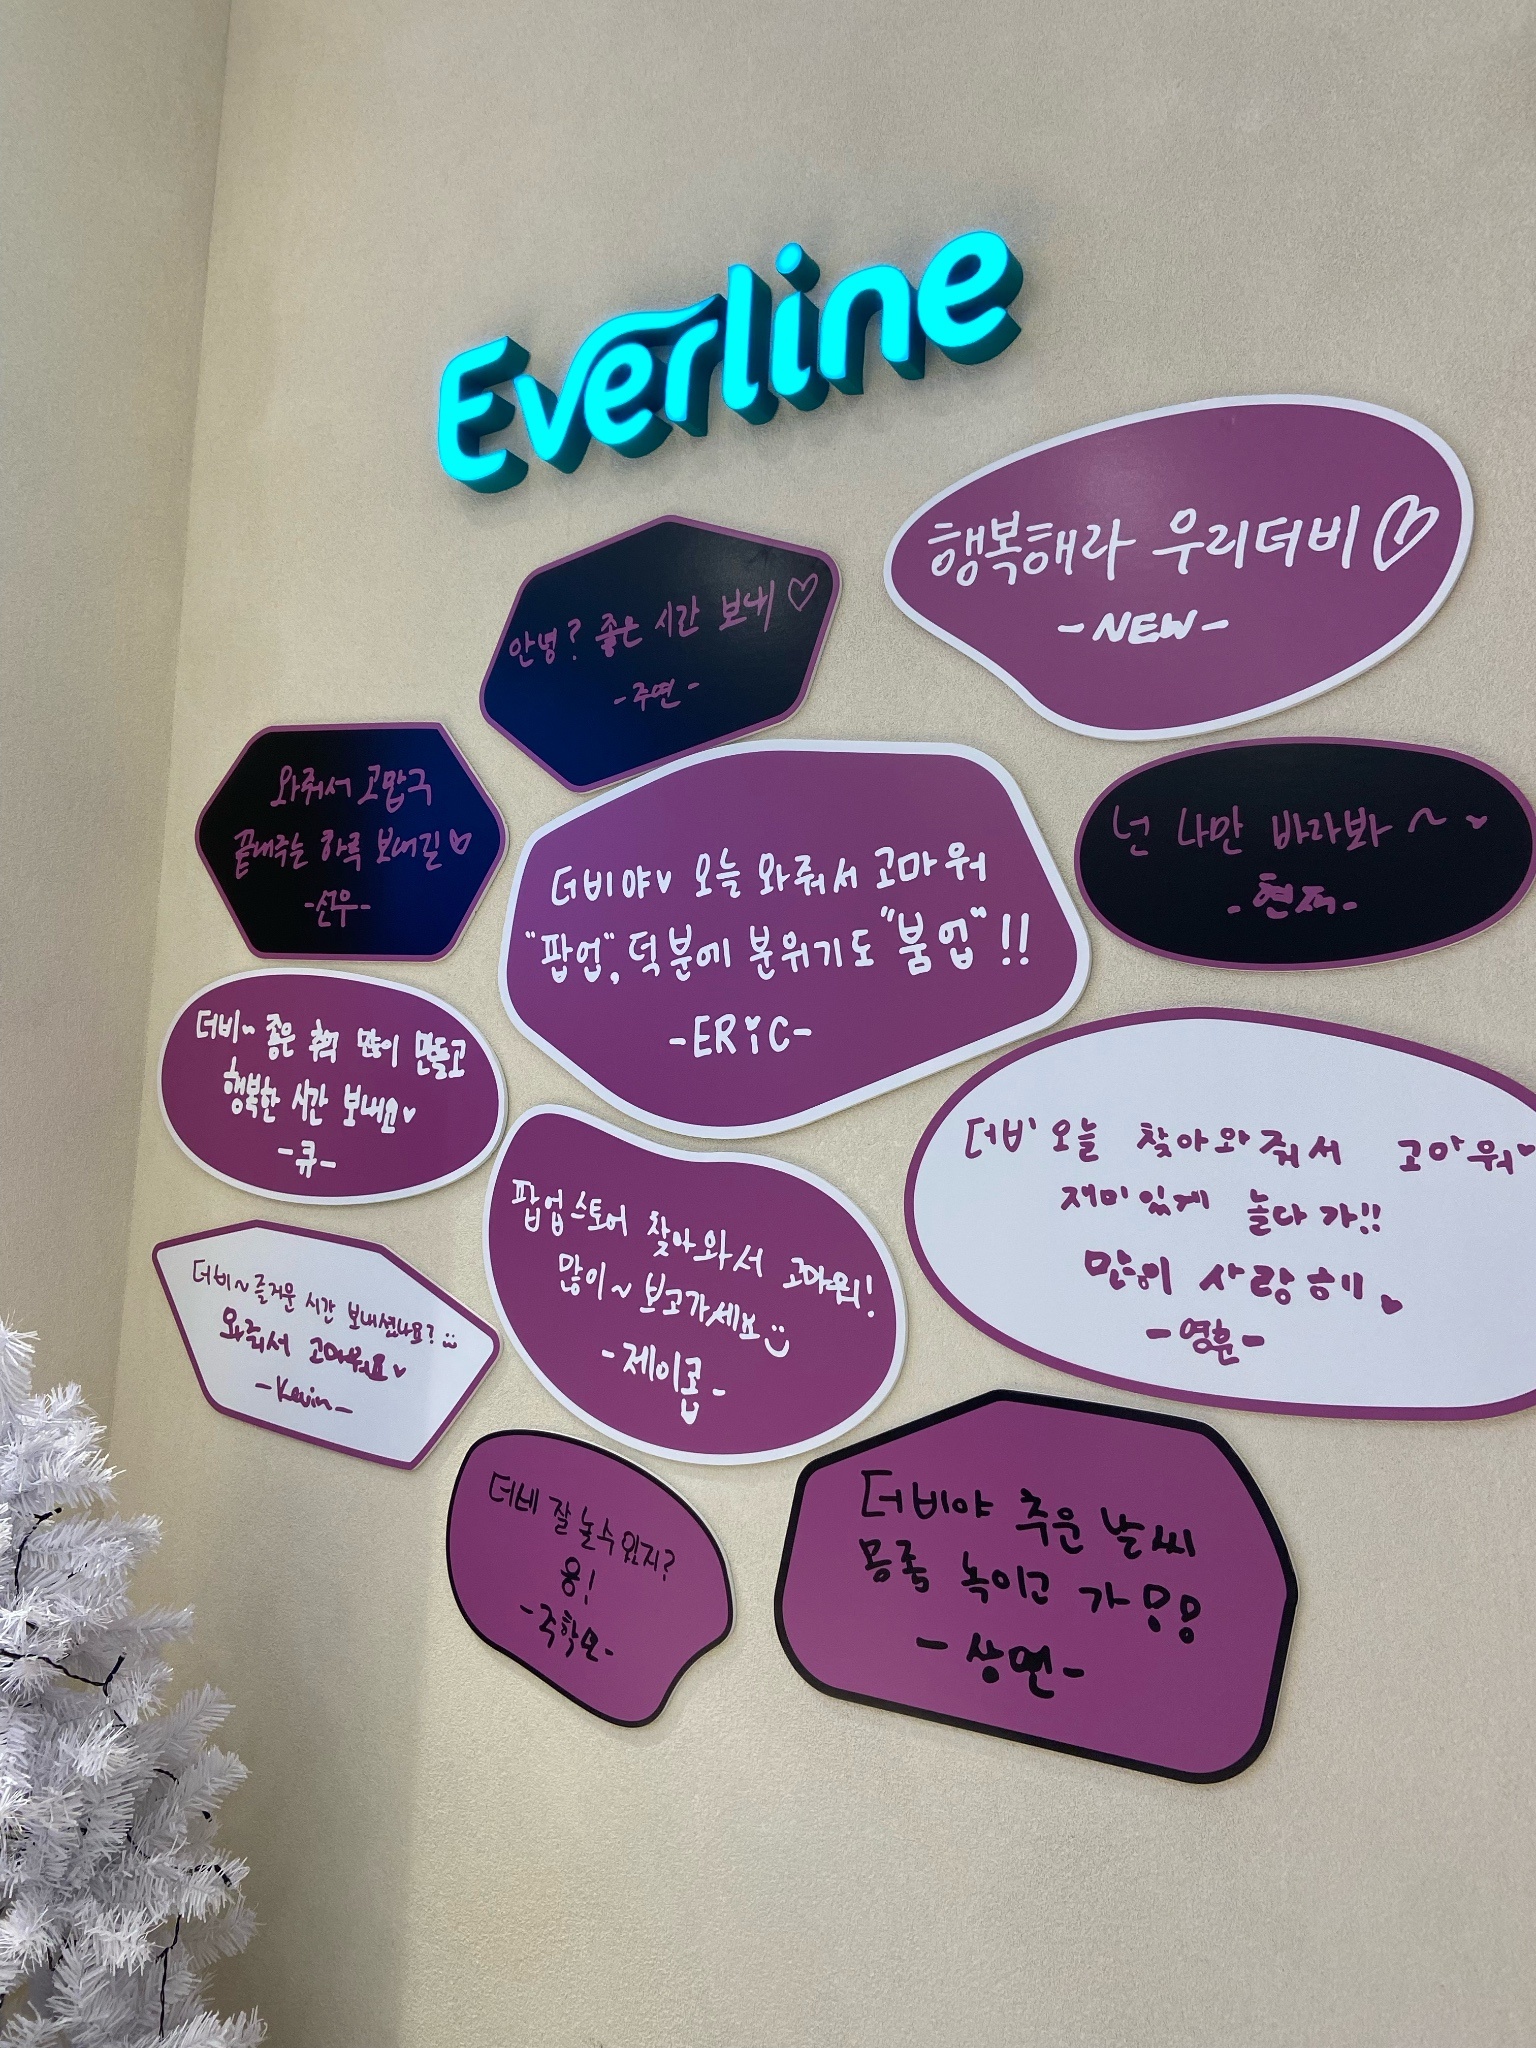 Everline
행복해라 우리더비
-NEW-
안녕? 좋은 시간 보내♡
-주연-
와줘서 고맙극
끝내주는 하루 보내길♡
-선우-
더비야♥ 오늘 와줘서 고마워
"팝업", 덕분에 분위기도 "붐업"!!
-ERiC-
넌 나만 바라봐~♥
-현재-
더비~ 좋은 추억 많이 만들고
행복한 시간 보내요♥
-큐-
팝업스토어 찾아와서 고마워!
많이~ 보고가세요
-제이콥-
더비 오늘 찾아와줘서 고마워♥
재미있게 놀다 가!!
많이 사랑해♥
-영훈-
더비~즐거운 시간 보내셨나요?
와줘서 고마워요♥
-Kevin-
더비 잘 놀수있지?
응!
-주학년-
더비야 추운 날씨
몽쪽 녹이고 가
-상연-